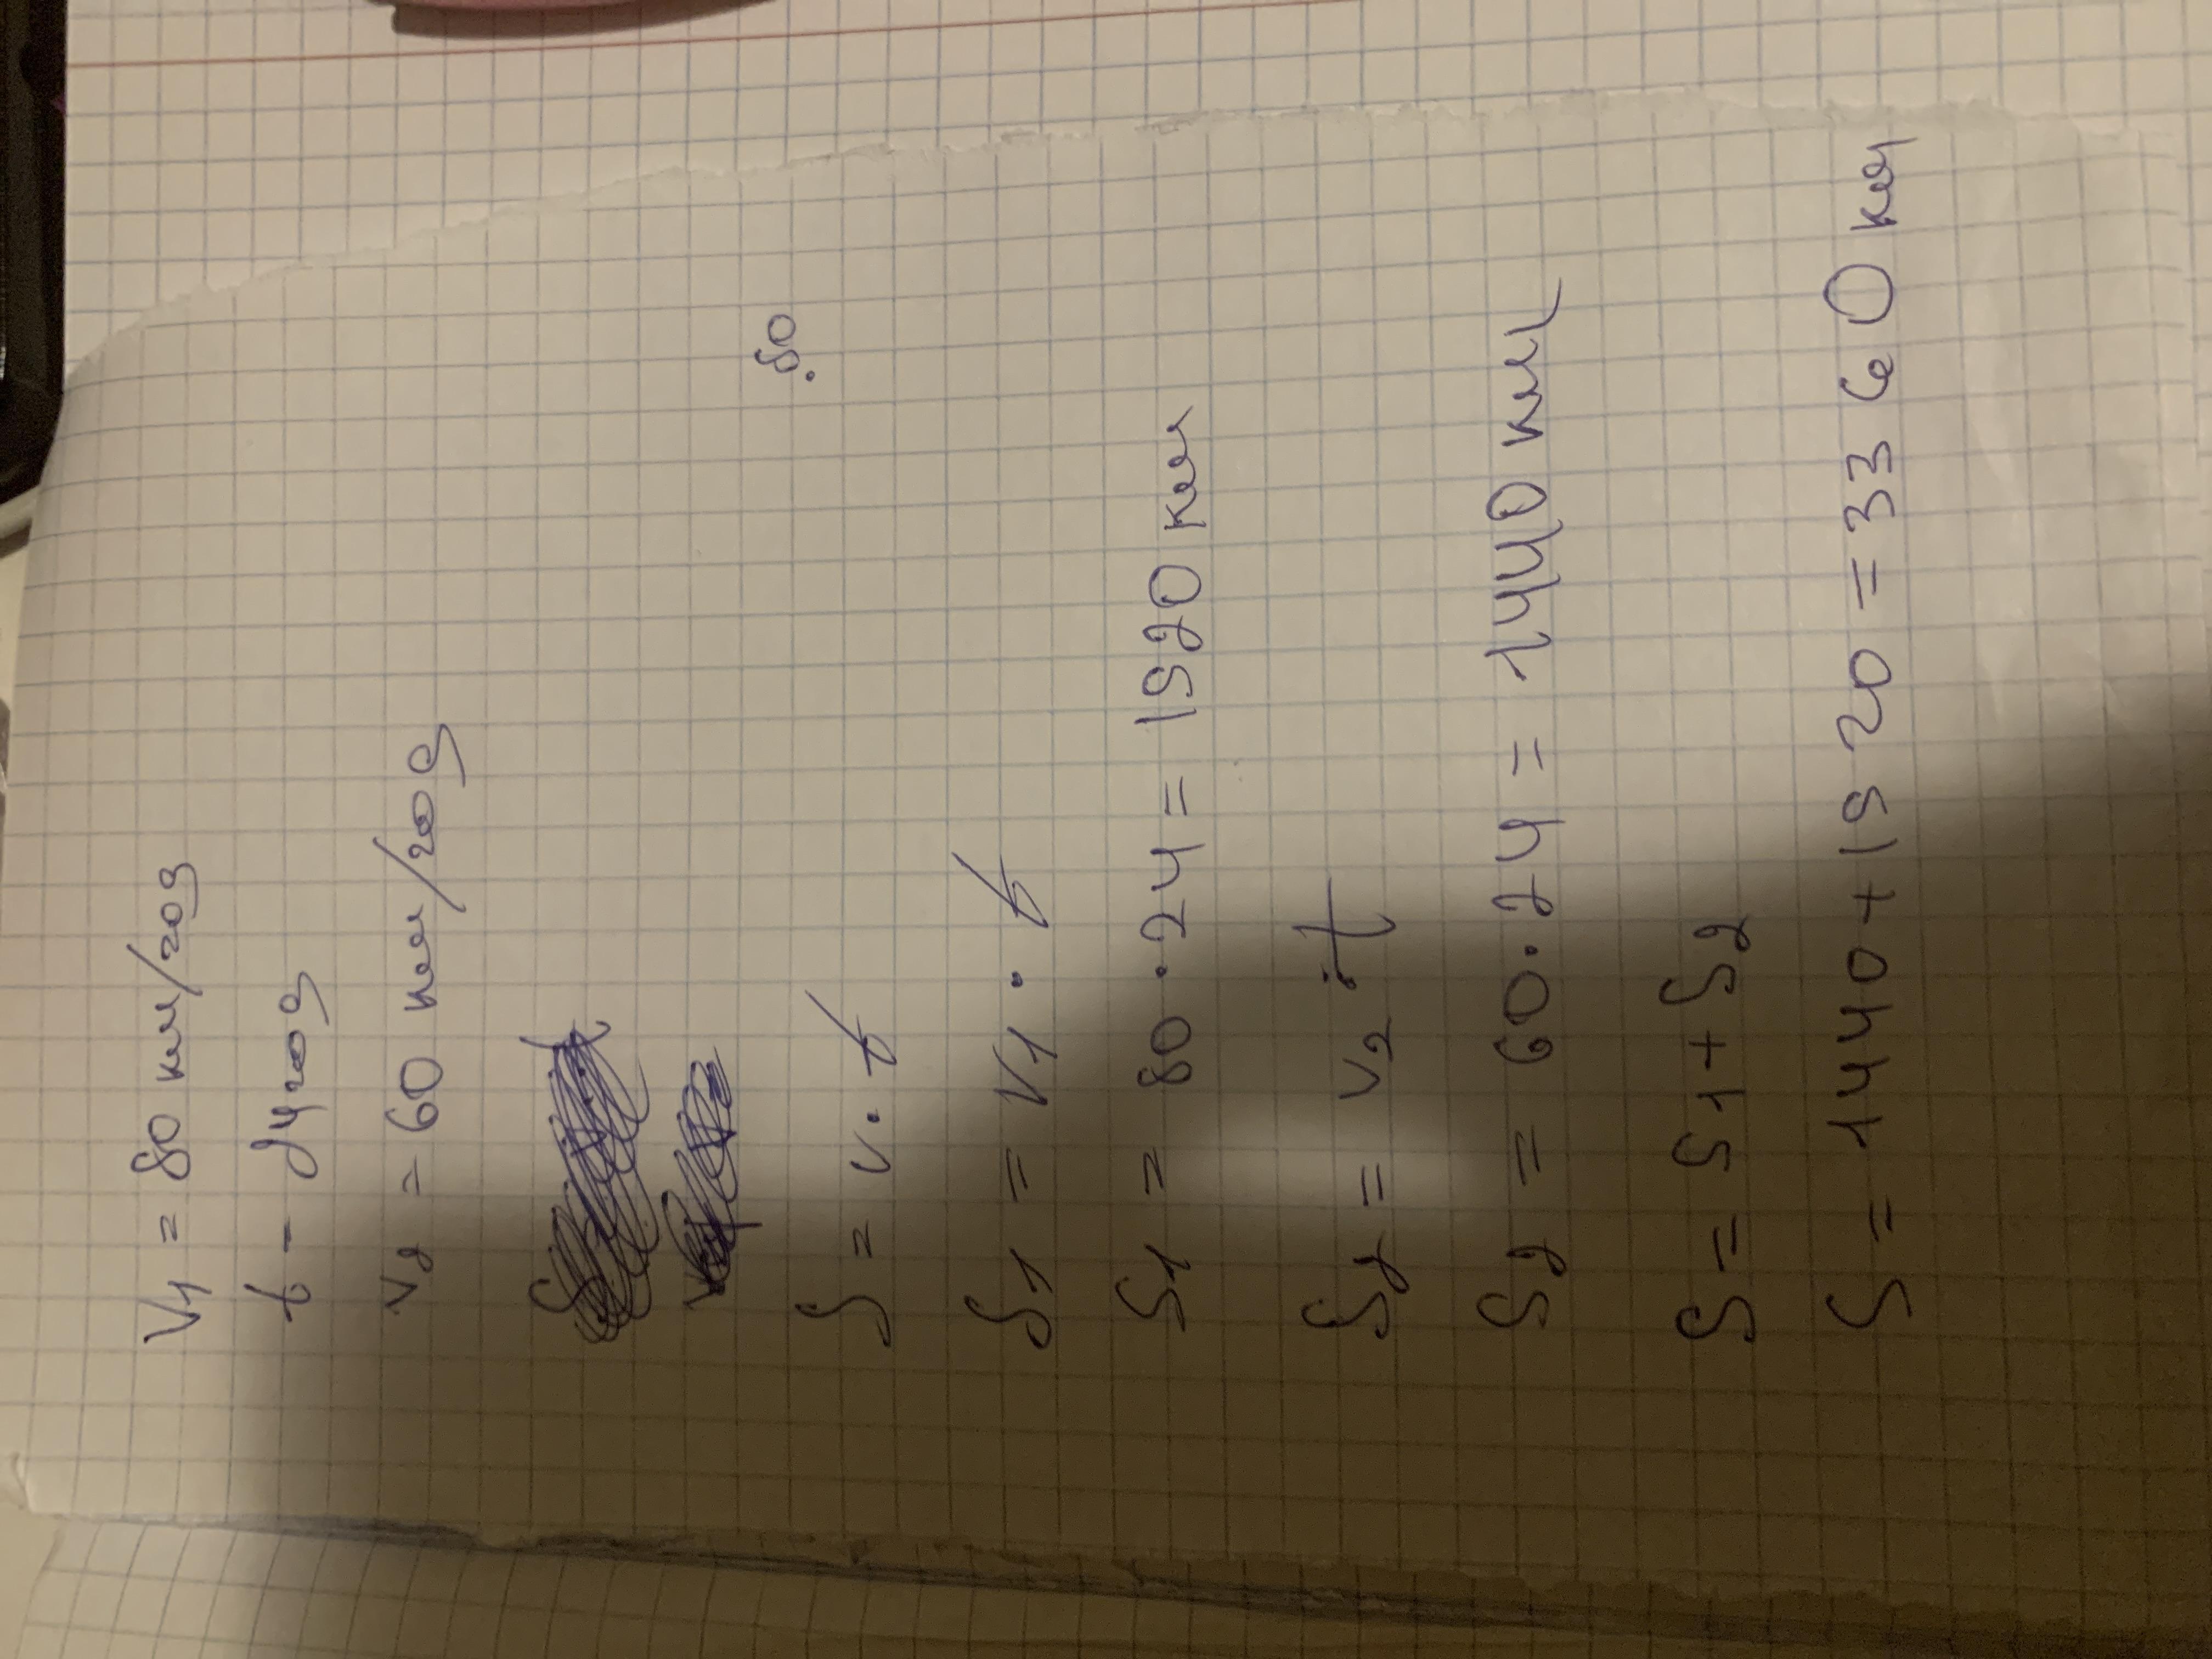 V₁ = 80 км/год
t - 24год
V₂ = 60 км/год
80
.
S = v · t
S₁ = V₁ · t
S₁ = 80 · 24 = 1920 км
S₂ = V₂ · t
S₂ = 60 · 24 = 1440 км
S = S₁ + S₂
S = 1440 + 1920 = 3360 км